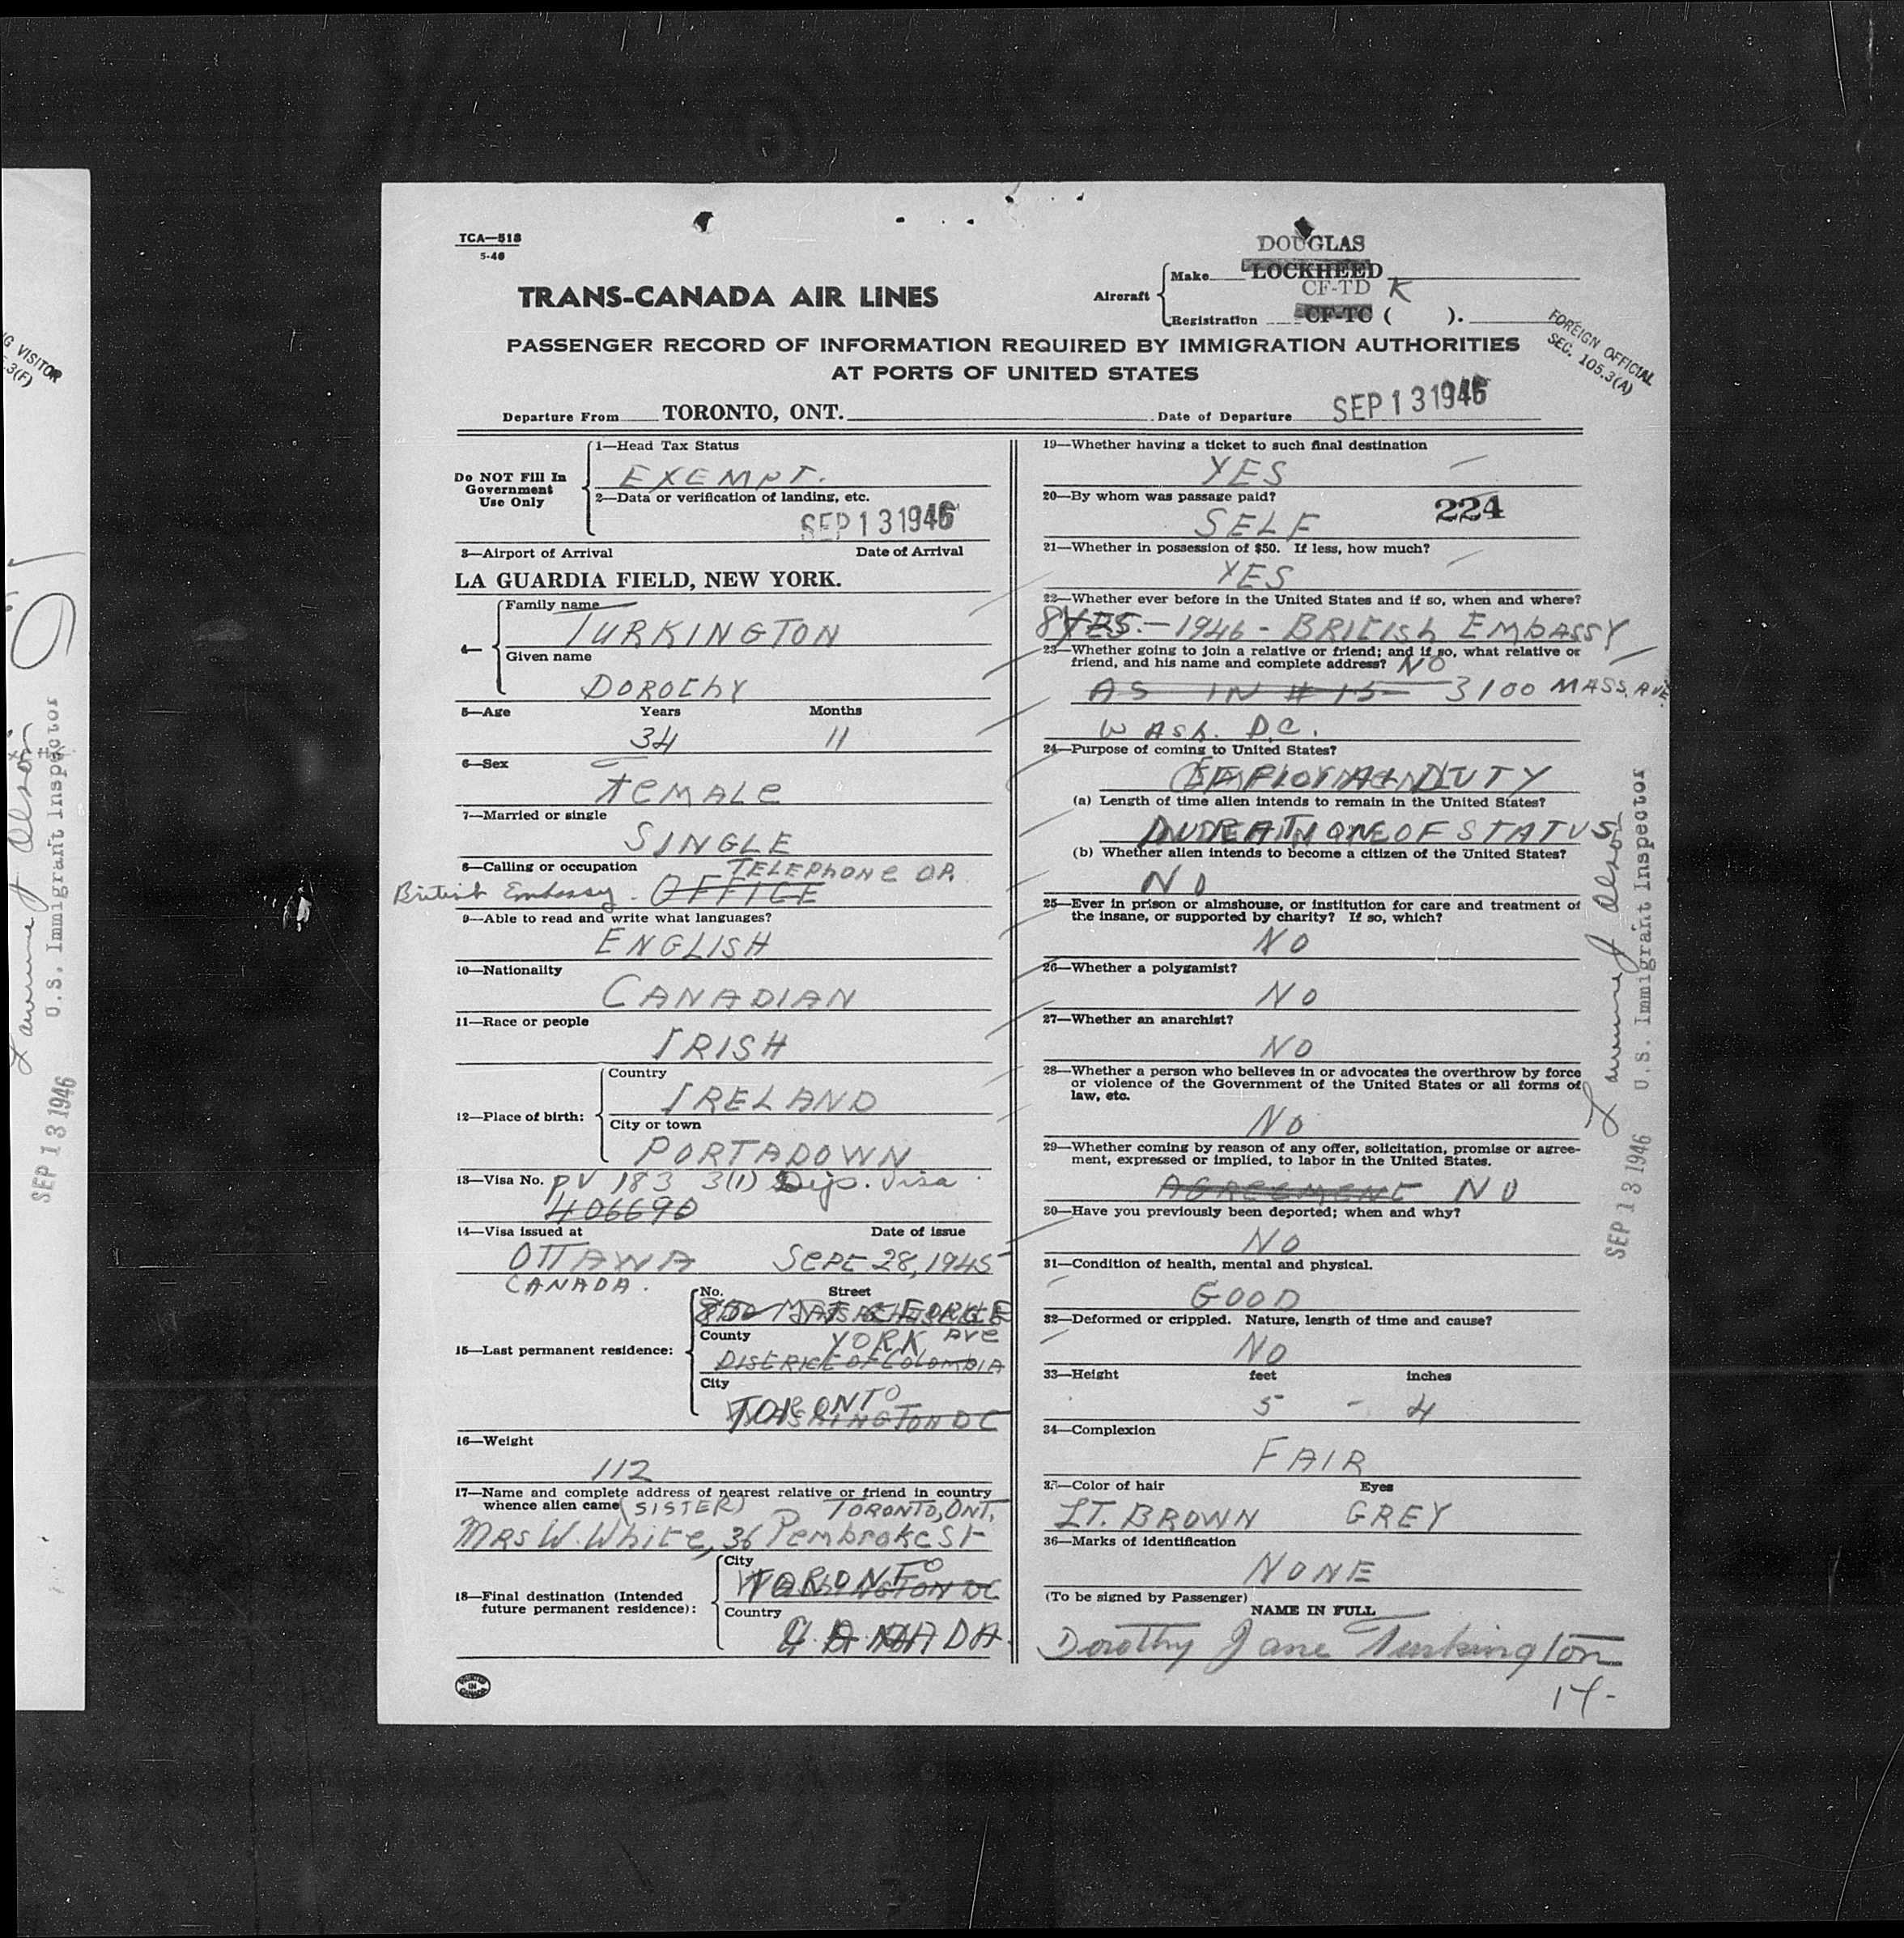 TCA—518
5-46
DOUGLAS
Make LOCKHEED
TRANS-CANADA AIR LINES
Aircraft
CF-TD K
Registration CF-TC ( ).
PASSENGER RECORD OF INFORMATION REQUIRED BY IMMIGRATION AUTHORITIES
AT PORTS OF UNITED STATES
FOREIGN OFFICIAL
SEC. 105.3(A)
Departure From TORONTO, ONT. Date of Departure SEP 13 1946
Do NOT Fill In
Government
Use Only
1—Head Tax Status
EXEMPT.
2—Data or verification of landing, etc.
SEP 13 1946
3—Airport of Arrival Date of Arrival
LA GUARDIA FIELD, NEW YORK.
4—
Family name
TURKINGTON
Given name
DOROthY
5—Age Years Months
34 11
6—Sex
FeMALe
7—Married or single
SINGLE
8—Calling or occupation
TELEPhONe OP.
British Embassy. OFFICE
9—Able to read and write what languages?
ENGLISH
10—Nationality
CANADIAN
11—Race or people
IRISH
12—Place of birth:
Country
IRELAND
City or town
PORTADOWN
13—Visa No. PV 183 3(1) Dip. Visa
406690
14—Visa issued at Date of issue
OTTAWA Sept 28, 1945
CANADA.
15—Last permanent residence:
No. Street
County
YORK Ave
DIStRICt OF COLOMBIA
City
TORONTO
WASHINGTON DC
16—Weight
112
17—Name and complete address of nearest relative or friend in country
whence alien came (SISTER) TORONTO, ONT.
MRS W. White, 36 Pembroke St
18—Final destination (Intended
future permanent residence):
City
TORONTO
WASHINGTON DC
Country
CANADA.
19—Whether having a ticket to such final destination
YES
20—By whom was passage paid?
224
SELF
21—Whether in possession of $50. If less, how much?
YES
22—Whether ever before in the United States and if so, when and where?
YES.—1946 - BRItISh EMbASSY
23—Whether going to join a relative or friend; and if so, what relative or
friend, and his name and complete address? NO
AS IN # 15 3100 MASS. AVE
WASh. D.C.
24—Purpose of coming to United States?
OFFICIAL DUTY
(a) Length of time alien intends to remain in the United States?
DURATION OF STATUS
(b) Whether alien intends to become a citizen of the United States?
NO
25—Ever in prison or almshouse, or institution for care and treatment of
the insane, or supported by charity? If so, which?
NO
26—Whether a polygamist?
NO
27—Whether an anarchist?
NO
28—Whether a person who believes in or advocates the overthrow by force
or violence of the Government of the United States or all forms of
law, etc.
NO
29—Whether coming by reason of any offer, solicitation, promise or agree-
ment, expressed or implied, to labor in the United States.
AGReeMeNt NO
30—Have you previously been deported; when and why?
NO
31—Condition of health, mental and physical.
GOOD
32—Deformed or crippled. Nature, length of time and cause?
NO
33—Height feet inches
5 - 4
34—Complexion
FAIR
35—Color of hair Eyes
LT. BROWN GREY
36—Marks of identification
NONE
(To be signed by Passenger)
NAME IN FULL
Dorothy Jane Turkington
14-
U.S. Immigrant Inspector
SEP 13 1946
VISITOR
U.S. Immigrant Inspector
SEP 13 1946